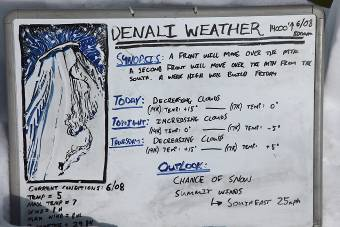 DENALI WEATHER 14000' 6/08
SYNOPSIS: A FRONT WILL MOVE OVER THE MTN
A SECOND FRONT WILL MOVE OVER THE MTN FROM THE
SOUTH. A WEAK HIGH WILL BUILD FRIDAY
TODAY: DECREASING CLOUDS
TEMP: +15° TEMP: -5°
TONIGHT: INCREASING CLOUDS
TEMP: 0° TEMP: -5°
THURSDAY: DECREASING CLOUDS
TEMP: +15° TEMP: +5°
OUTLOOK:
CHANCE OF SNOW.
SUMMIT WINDS
SOUTHEAST 25 mph
CURRENT CONDITIONS: 6/08
TEMP = 5
MAX TEMP = 7
WIND =
MAX WIND =